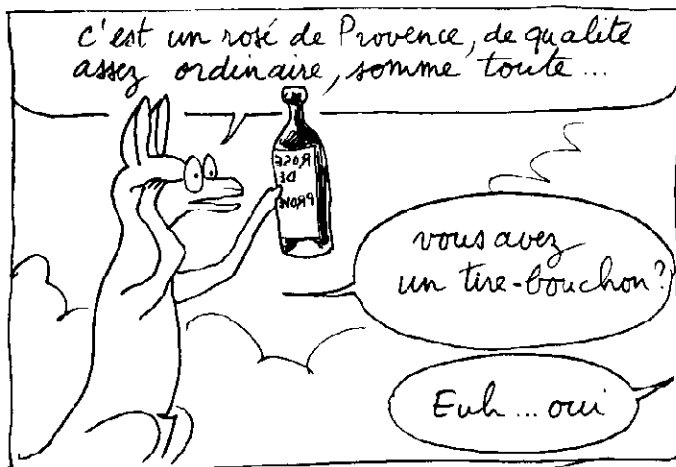 c'est un rosé de Provence, de qualité
assez ordinaire, somme toute...
ROSE
DE
PROVE
vous avez
un tire-bouchon?
Euh... oui